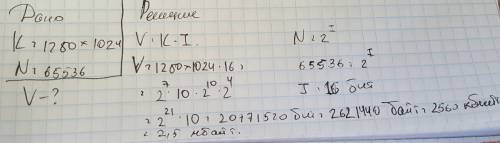 Дано
K = 1280 × 1024
N = 65536
V - ?
Решение
V = K · I
V = 1280 × 1024 · 16 =
= 2^7 · 10 · 2^10 · 2^4
= 2^21 · 10 = 20971520 бит = 2621440 байт = 2560 кбайт
= 2,5 мбайт.
N = 2^I
65536 = 2^I
I = 16 бит